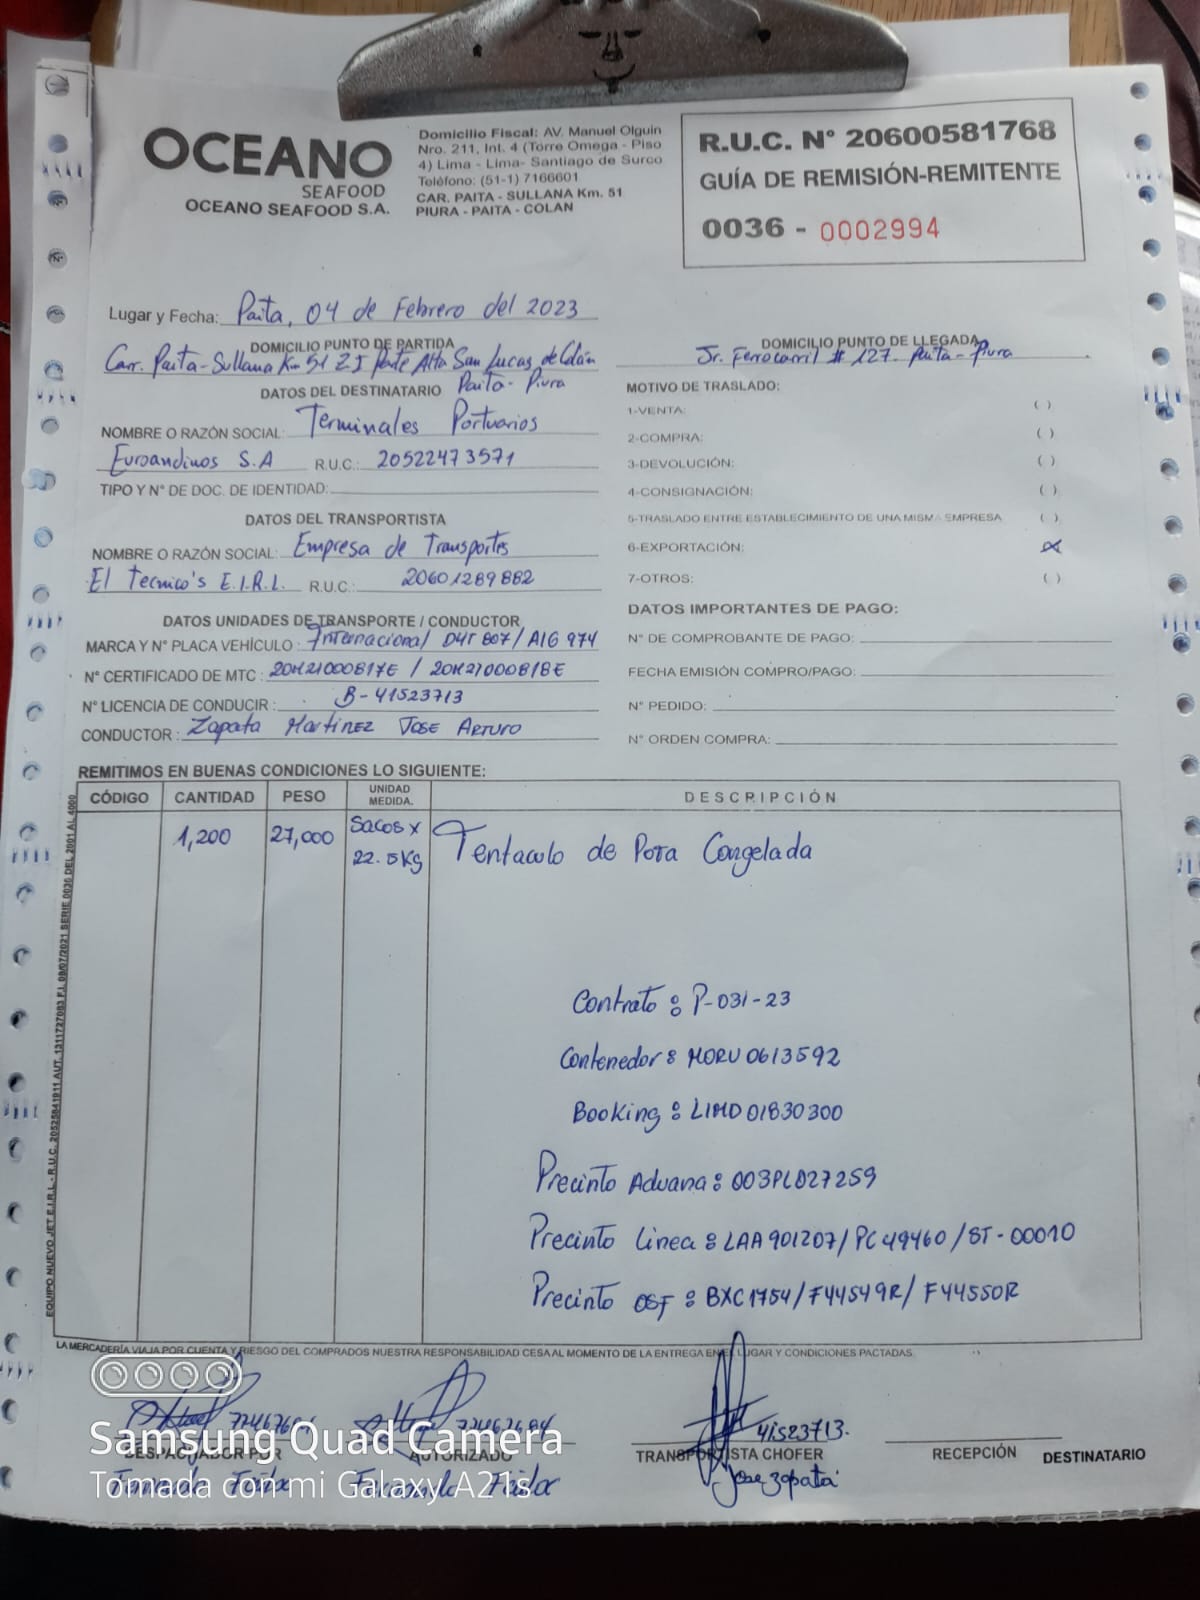 OCEANO
SEAFOOD
OCEANO SEAFOOD S.A.
Domicilio Fiscal: AV. Manuel Olguin
Nro. 211, Int. 4 (Torre Omega - Piso
4) Lima - Lima- Santiago de Surco
Teléfono: (51-1) 7166601
CAR. PAITA - SULLANA Km. 51
PIURA - PAITA - COLAN
R.U.C. N° 20600581768
GUÍA DE REMISIÓN-REMITENTE
0036 - 0002994
Lugar y Fecha: Paita, 04 de Febrero del 2023
DOMICILIO PUNTO DE PARTIDA
Carr. Paita-Sullana Km 51 Z.I Parte Alta San Lucas de Colán
Paita - Piura
DOMICILIO PUNTO DE LLEGADA
Jr. Ferrocarril # 127. Paita - Piura
DATOS DEL DESTINATARIO
NOMBRE O RAZÓN SOCIAL: Terminales Portuarios
Euroandinos S.A R.U.C.: 20522473571
TIPO Y N° DE DOC. DE IDENTIDAD:
DATOS DEL TRANSPORTISTA
NOMBRE O RAZÓN SOCIAL: Empresa de Transportes
El Tecnico's E.I.R.L. R.U.C.: 20601289882
DATOS UNIDADES DE TRANSPORTE / CONDUCTOR
MARCA Y N° PLACA VEHÍCULO: Internacional D4T 807 / AIG 974
N° CERTIFICADO DE MTC: 20M21000817E / 20M21000818E
N° LICENCIA DE CONDUCIR: B-41523713
CONDUCTOR: Zapata Martinez Jose Arturo
MOTIVO DE TRASLADO:
1-VENTA: ( )
2-COMPRA: ( )
3-DEVOLUCIÓN: ( )
4-CONSIGNACIÓN: ( )
5-TRASLADO ENTRE ESTABLECIMIENTO DE UNA MISMA EMPRESA ( )
6-EXPORTACIÓN: (X)
7-OTROS: ( )
DATOS IMPORTANTES DE PAGO:
N° DE COMPROBANTE DE PAGO:
FECHA EMISIÓN COMPRO/PAGO:
N° PEDIDO:
N° ORDEN COMPRA:
REMITIMOS EN BUENAS CONDICIONES LO SIGUIENTE:
CÓDIGO CANTIDAD PESO UNIDAD MEDIDA. DESCRIPCIÓN
1,200 27,000 Sacos x 22.5Kg Tentaculo de Pota Congelada
Contrato: P-031-23
Contenedor: MORU 0613592
Booking: LIMD01830300
Precinto Aduana: 003PL027259
Precinto Linea: LAA 901207/ PC 49460 / ST-00010
Precinto OSF: BXC1754/ F44549R/ F44550R
EQUIPO NUEVO JET E.I.R.L - R.U.C. 20525841911 AUT. 1311727083 F.I. 09/07/2021 SERIE 0036 DEL 2001 AL 4000
LA MERCADERÍA VIAJA POR CUENTA Y RIESGO DEL COMPRADOS NUESTRA RESPONSABILIDAD CESA AL MOMENTO DE LA ENTREGA EN EL LUGAR Y CONDICIONES PACTADAS
41523713.
DESPACHADOR POR
AUTORIZADO
TRANSPORTISTA CHOFER
RECEPCIÓN DESTINATARIO
Jose Zapata
Samsung Quad Camera
Tomada con mi Galaxy A21s